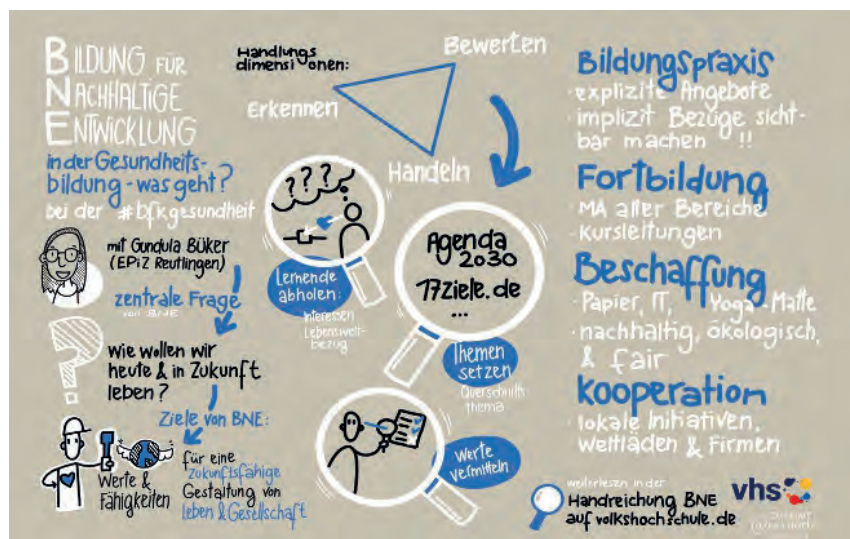 BILDUNG FÜR
NACHHALTIGE
ENTWICKLUNG
in der Gesundheits-
bildung - was geht?
bei der #bfkgesundheit
mit Gundula Büker
(EPiZ Reutlingen)
zentrale Frage
von BNE
Wie wollen wir
heute & in Zukunft
leben?
Ziele von BNE:
Werte &
Fähigkeiten
für eine
zukunftsfähige
Gestaltung von
Leben & Gesellschaft
Handlungs
dimensionen:
Bewerten
Erkennen
Handeln
???
Lernende
abholen:
Interessen
Lebenswelt-
bezug
Agenda
2030
17ziele.de
...
Themen
setzen
Querschnitts
thema
Werte
vermitteln
Bildungspraxis
· explizite Angebote
· implizit Bezüge sicht-
bar machen !!
Fortbildung
· MA aller Bereiche
· Kursleitungen
Beschaffung
· Papier, IT, Yoga-Matte
· nachhaltig, ökologisch,
& fair
Kooperation
· lokale Initiativen,
Weltläden & Firmen
weiterlesen in der
Handreichung BNE
auf volkshochschule.de
vhs